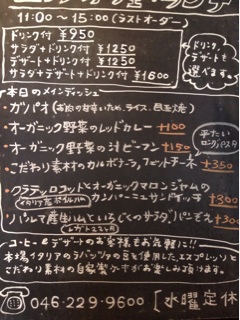 11:00〜15:00(ラストオーダー)
ドリンク付 ¥950
サラダ+ドリンク付 ¥1250
デザート+ドリンク付 ¥1250
サラダ+デザート+ドリンク付 ¥1600
ドリンク、
デザートも
選べます。
本日のメインディッシュ
・ガパオ
・オーガニック野菜のレッドカレー +100
・オーガニック野菜の汁ビーフン +150
平たい
ロングパスタ
・こだわり素材のカルボナーラ、フェットチーネ +350
・クラテッロコットとオーガニックマロンジャムの
カンパーニュサンドイッチ +300
・パルマ産生ハムといちじくのサラダ、パンぞえ +300
コーヒー&デザートのお客様もお気軽に!!
本場イタリアのラバッツァの豆を使用した、エスプレッソと
こだわり素材の自家製デザートがお楽しみ頂けます。
☎046-229-9600 [水曜定休]